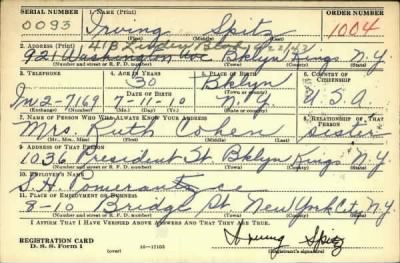 SERIAL NUMBER 1. NAME (Print) ORDER NUMBER
0093 Irving Spitz 1004
2. ADDRESS (Print)
921 Washington Ave Bklyn Kings N.Y.
(Number and street or R. F. D. number) (Town) (County) (State)
3. TELEPHONE 4. AGE IN YEARS 5. PLACE OF BIRTH 6. COUNTRY OF CITIZENSHIP
30 Bklyn
DATE OF BIRTH (Town or county)
7-11-10 N.Y. U.S.A.
(Exchange) (Number) (Mo.) (Day) (Yr.) (State or country)
7. NAME OF PERSON WHO WILL ALWAYS KNOW YOUR ADDRESS 8. RELATIONSHIP OF THAT PERSON
Mrs Ruth Cohen sister
(Mr., Mrs., Miss) (First) (Middle) (Last)
9. ADDRESS OF THAT PERSON
1036 President St. Bklyn Kings N.Y.
(Number and street or R. F. D. number) (Town) (County) (State)
10. EMPLOYER'S NAME
S. H. Pomerantz
11. PLACE OF EMPLOYMENT OR BUSINESS
8-10 Bridge St. New York City N.Y.
(Number and street or R. F. D. number) (Town) (County) (State)
I AFFIRM THAT I HAVE VERIFIED ABOVE ANSWERS AND THAT THEY ARE TRUE.
REGISTRATION CARD Irving Spitz
D. S. S. Form 1 (over) (Registrant's signature)